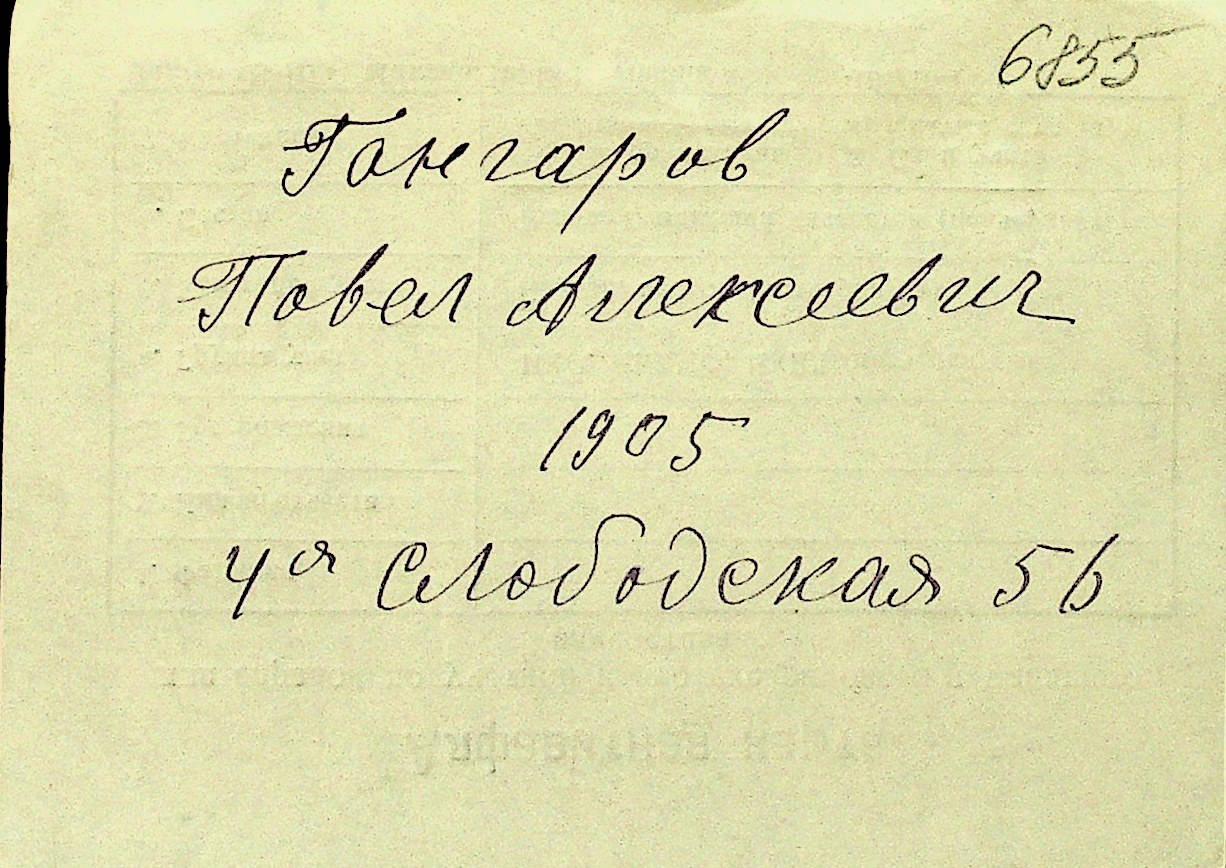 6855
Гонгаров
Повел Алексеевич
1905
4я Слободская 56